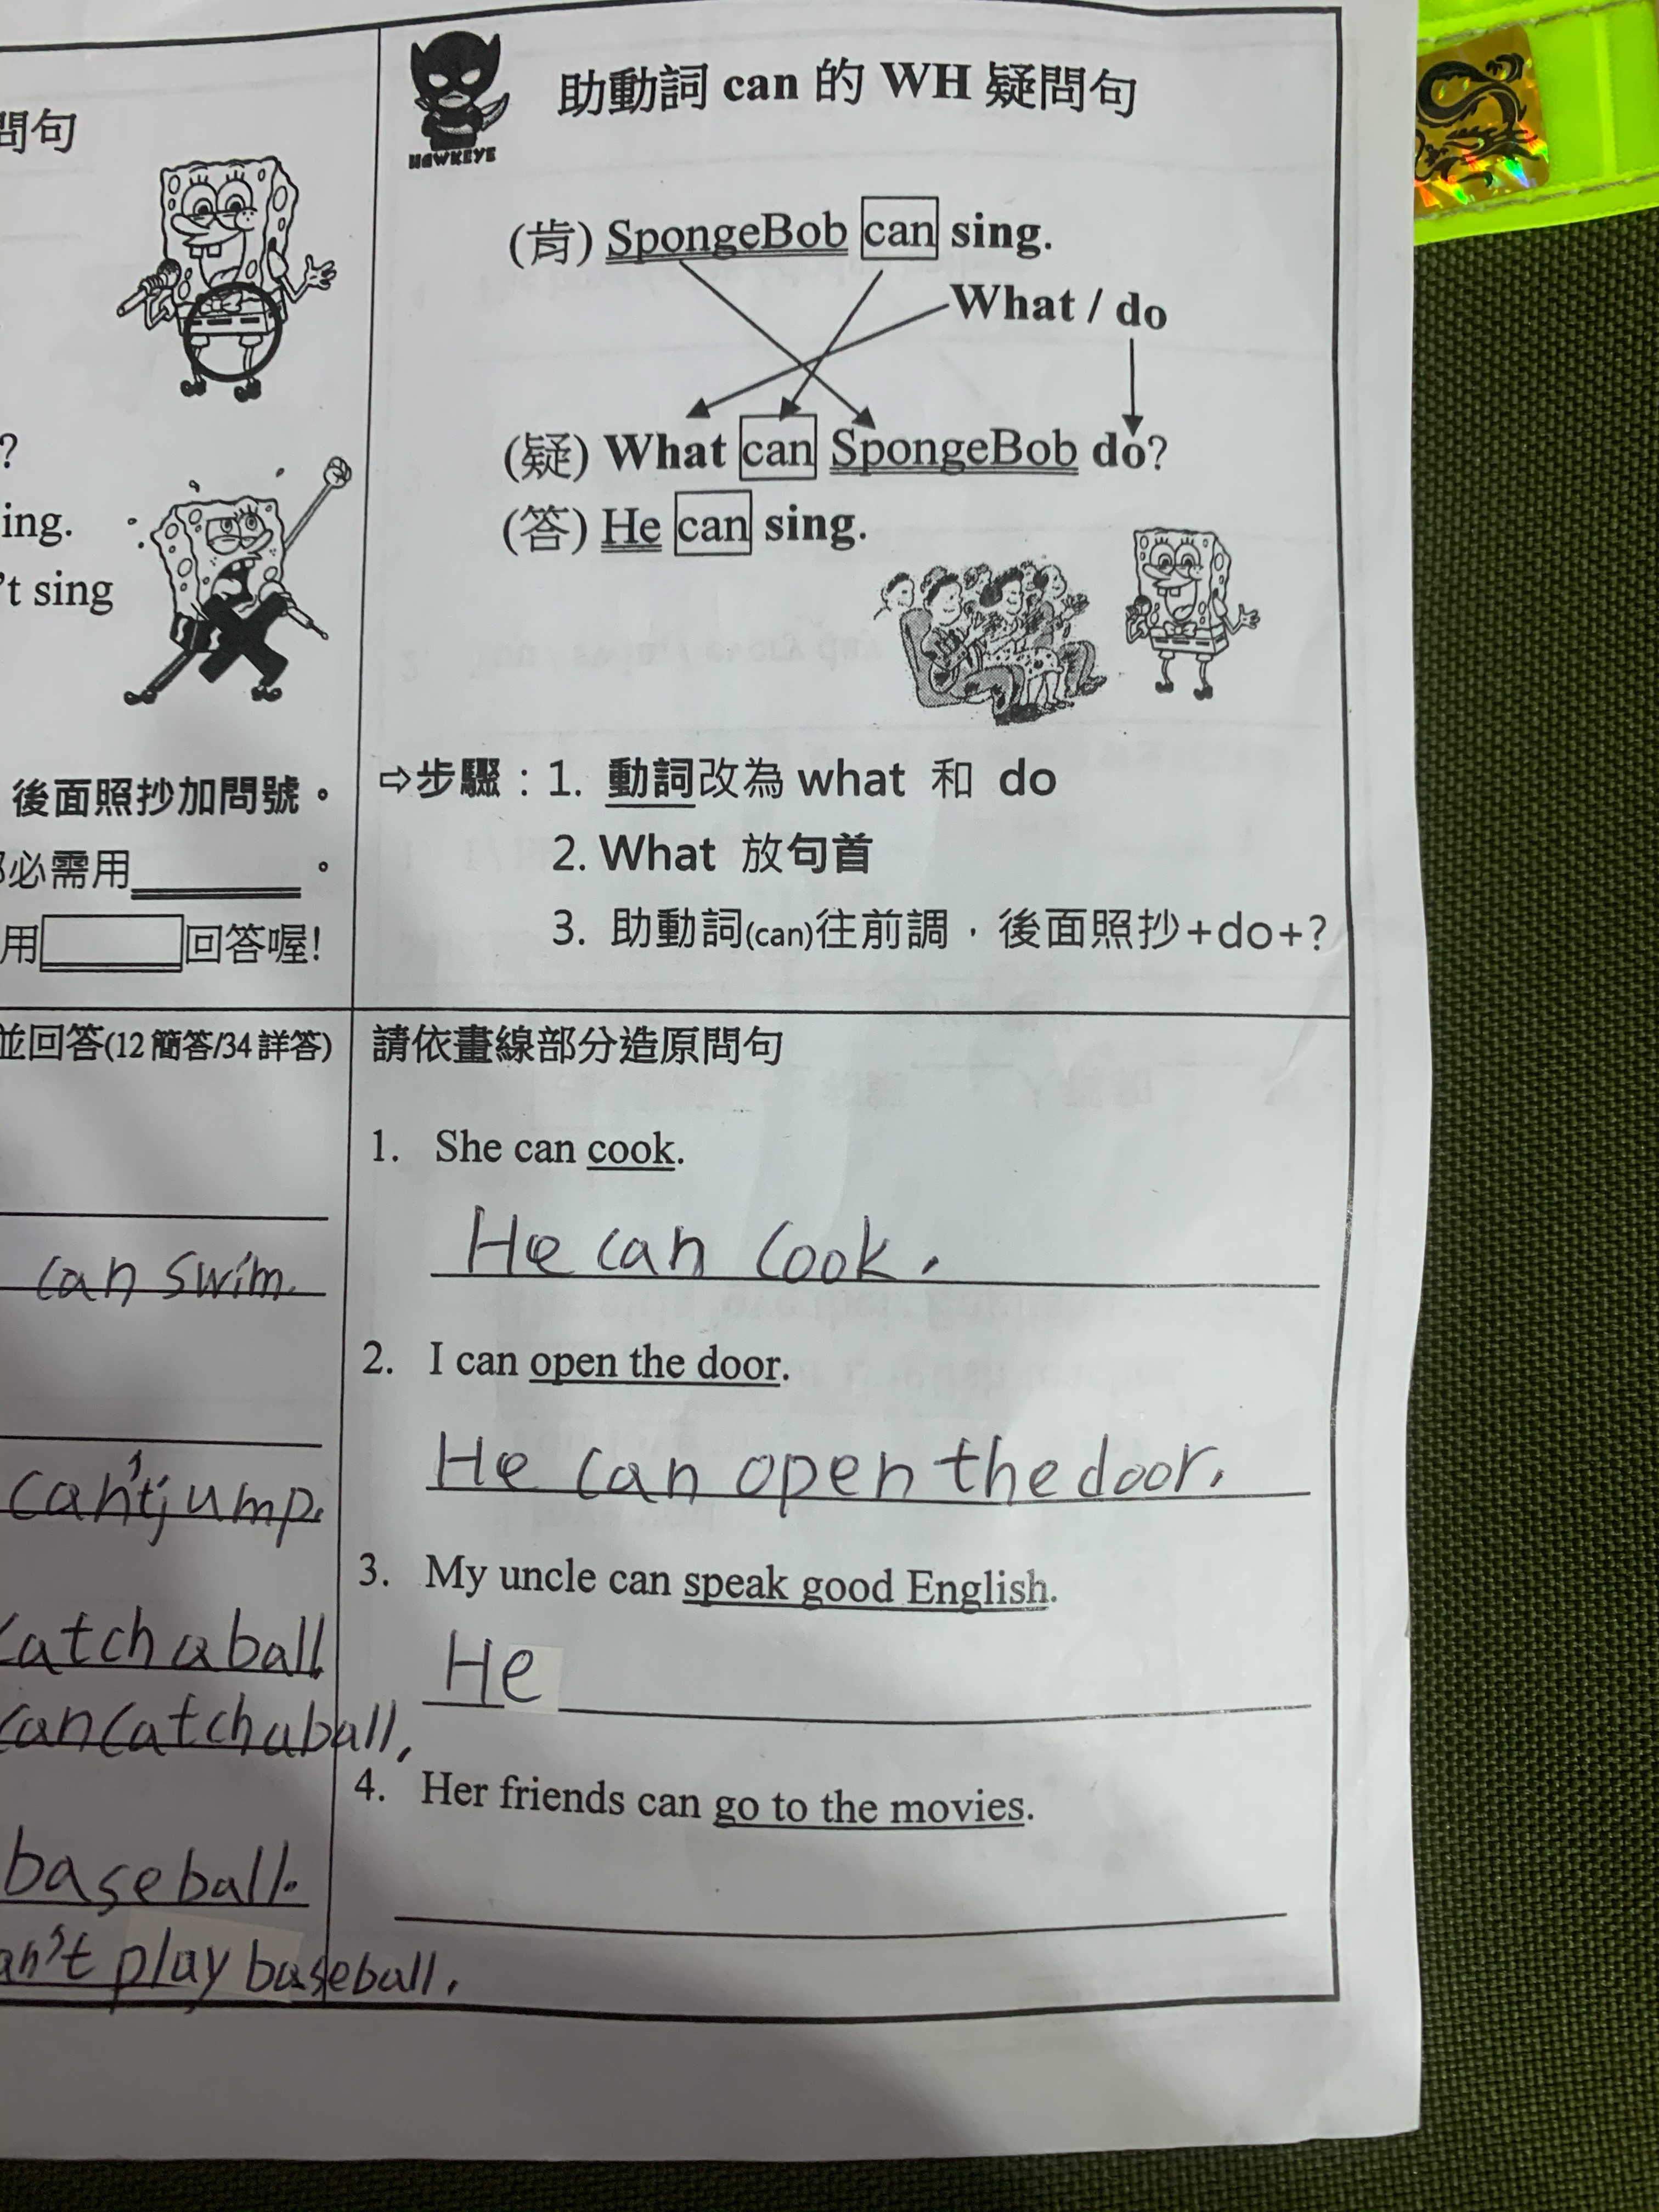 問句
?
ing.
't sing
後面照抄加問號。
必需用 。
用 回答喔!
並回答(12 簡答/34 詳答)
can swim.
can't jump.
catch a ball.
can catch a ball.
baseball.
an't play baseball.
HAWKEYE
助動詞 can 的 WH 疑問句
(肯) SpongeBob can sing.
What / do
(疑) What can SpongeBob do?
(答) He can sing.
⇨步驟：1. 動詞改為 what 和 do
2. What 放句首
3. 助動詞(can)往前調，後面照抄+do+?
請依畫線部分造原問句
1. She can cook.
He can cook.
2. I can open the door.
He can open the door.
3. My uncle can speak good English.
He
4. Her friends can go to the movies.